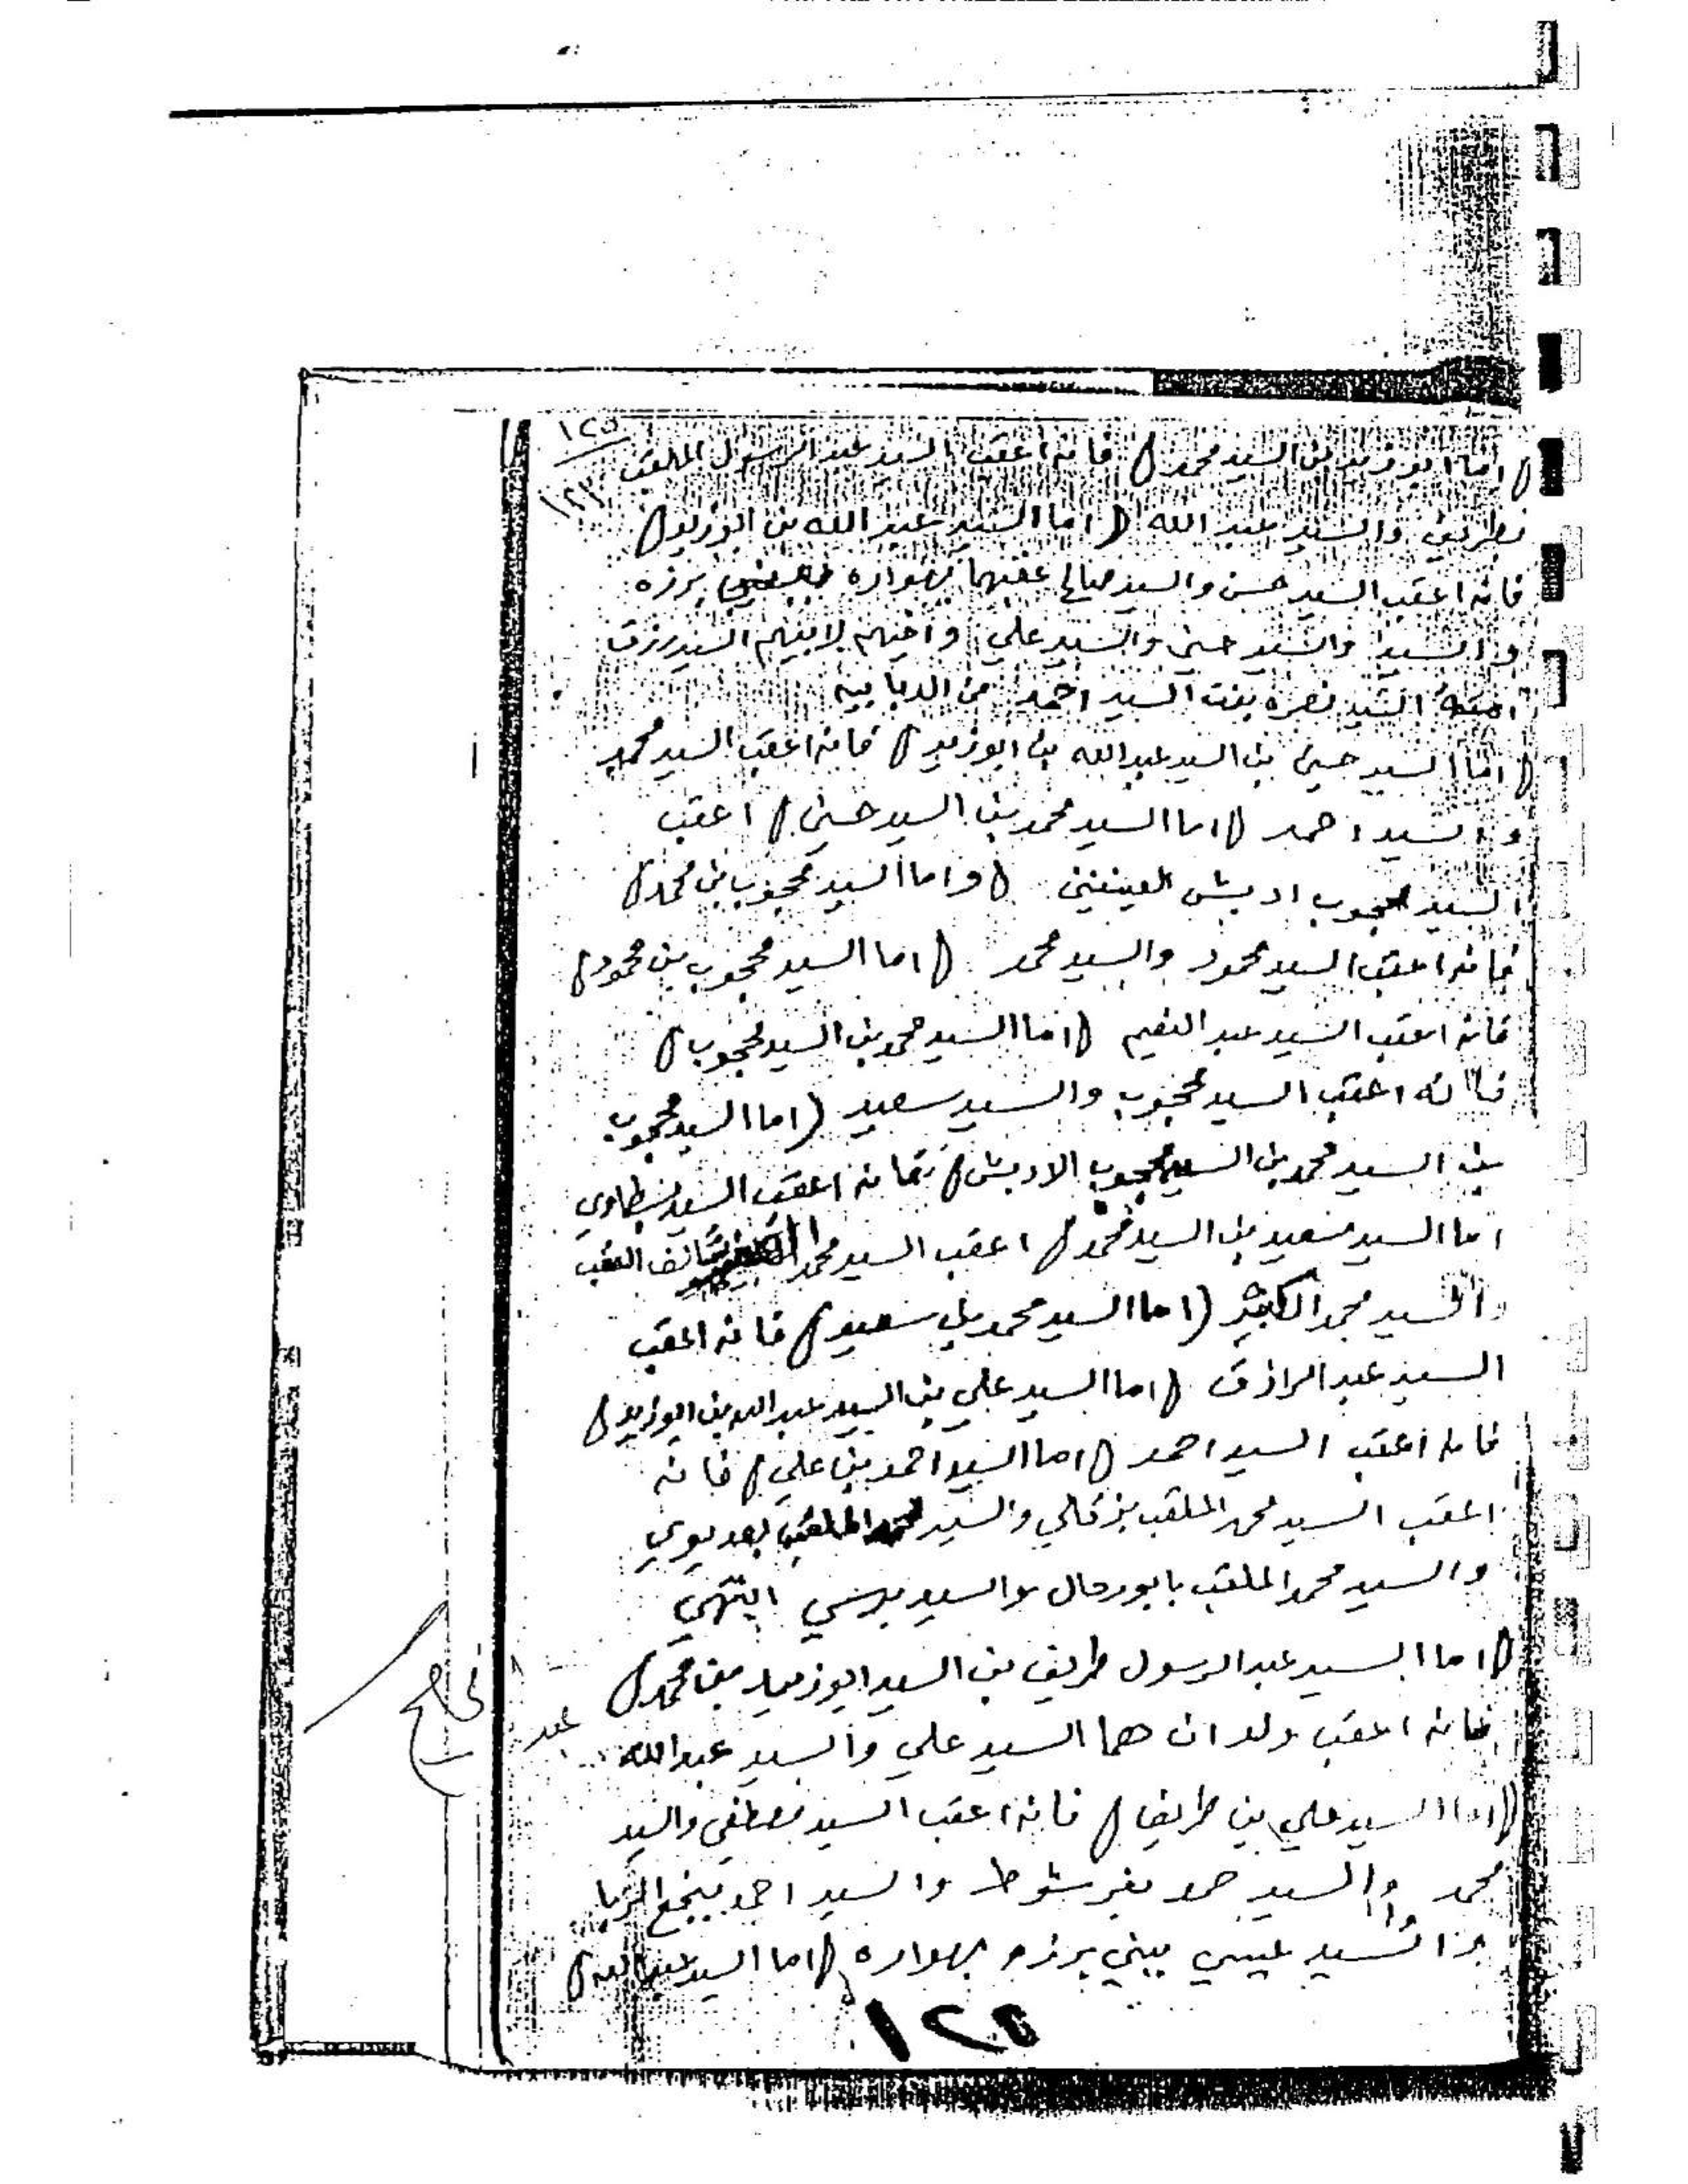 ١٢٥
( اما ابوزيد بن السيد محمد ) فانه اعقب السيد عبد الرسول الملقب
بطريف والسيد عبد الله ( اما السيد عبد الله بن ابوزيد )
فانه اعقب السيد حسن والسيد صالح عقبهما بهواره ببني برزه
والسيد والسيد حسين والسيد علي واخيهم لابيهم السيد رزق
امه السيد نصره بنت السيد احمد من الدبابيه
( اما السيد حسين بن السيد عبدالله بن ابوزيد ) فانه اعقب السيد محمد
والسيد احمد ( اما السيد محمد بن السيد حسين ) اعقب
السيد محجوب ادبش العينين ( واما السيد محجوب بن محمد )
فانه اعقب السيد محمود والسيد محمد ( اما السيد محجوب بن محمود )
فانه اعقب السيد عبد النعيم ( اما السيد محمد بن السيد محجوب )
فاانه اعقب السيد محجوب والسيد سعيد ( اما السيد محجوب
بن السيد محمد بن السيد محجوب الادبش ) فانه اعقب السيد بسطاوي
اما السيد سعيد بن السيد محمد ) اعقب السيد محمد العقب
والسيد محمد الكبير ( اما السيد محمد بن سعيد ) فانه اعقب
السيد عبد الرازق ( اما السيد علي بن السيد عبد الله بن ابوزيد )
فانه اعقب السيد احمد ( اما السيد احمد بن علي ) فانه
اعقب السيد محمد الملقب والسيد محمد الملقب
والسيد محمد الملقب بابورحال والسيد انتهي
( اما السيد عبد الرسول طريف بن السيد ابوزيد بن محمد )
فانه اعقب ولدان هما السيد علي والسيد عبدالله
( اما السيد علي بن طريف ) فانه اعقب السيد مصطفي والسيد
محمد والسيد حمد بفرشوط والسيد احمد بنجع
والسيد عيسي ببني برزه بهواره ( اما السيد عبد الله )
١٢٥